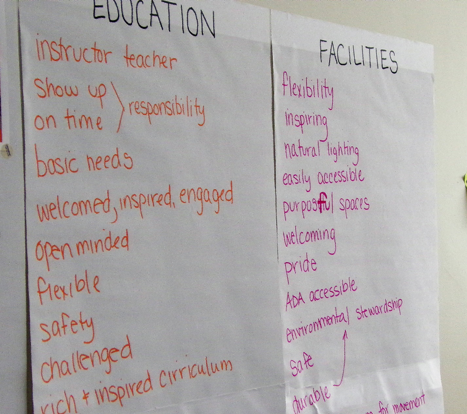 EDUCATION
instructor teacher
show up
on time
responsibility
basic needs
welcomed, inspired, engaged
open minded
flexible
safety
challenged
rich + inspired cirriculum
FACILITIES
flexibility
inspiring
natural lighting
easily accessible
purposful spaces
welcoming
pride
ADA accessible
environmental stewardship
safe
durable
for movement